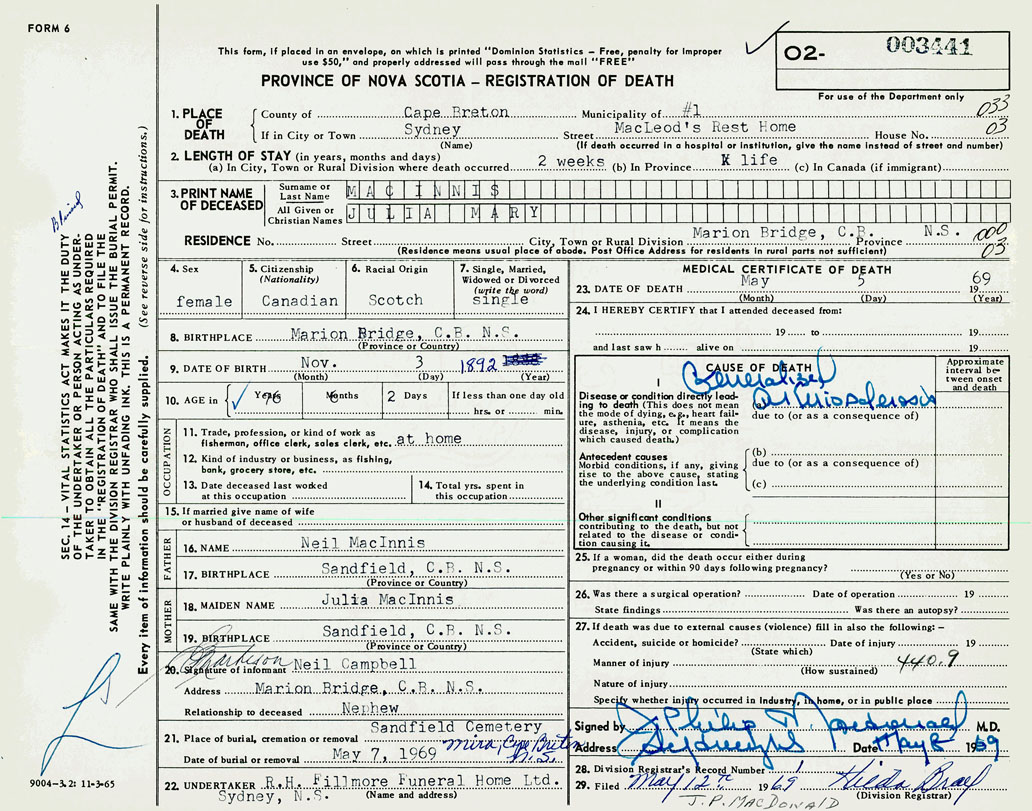 FORM 6
This form, if placed in an envelope, on which is printed "Dominion Statistics – Free, penalty for improper
use $50," and properly addressed will pass through the mail "FREE"
PROVINCE OF NOVA SCOTIA – REGISTRATION OF DEATH
02- 003441
For use of the Department only
1. PLACE OF DEATH County of Cape Breton Municipality of #1 033
If in City or Town Sydney Street MacLeod's Rest Home House No. 03
(Name) (If death occurred in a hospital or institution, give the name instead of street and number)
2. LENGTH OF STAY (in years, months and days)
(a) In City, Town or Rural Division where death occurred 2 weeks (b) In Province life (c) In Canada (if immigrant)
3. PRINT NAME OF DECEASED Surname or Last Name MAC INNIS
All Given or Christian Names JULIA MARY
RESIDENCE No. Street City, Town or Rural Division Marion Bridge, C.B. Province N.S. 1000
(Residence means usual place of abode. Post Office Address for residents in rural parts not sufficient) 03
4. Sex female
5. Citizenship (Nationality) Canadian
6. Racial Origin Scotch
7. Single, Married, Widowed or Divorced (write the word) single
8. BIRTHPLACE Marion Bridge, C.B. N.S.
(Province or Country)
9. DATE OF BIRTH Nov. 3 1892
(Month) (Day) (Year)
10. AGE in Years 76 Months 2 Days If less than one day old
hrs. or min.
OCCUPATION
11. Trade, profession, or kind of work as
fisherman, office clerk, sales clerk, etc. at home
12. Kind of industry or business, as fishing,
bank, grocery store, etc.
13. Date deceased last worked
at this occupation
14. Total yrs. spent in
this occupation
15. If married give name of wife
or husband of deceased
FATHER
16. NAME Neil MacInnis
17. BIRTHPLACE Sandfield, C.B. N.S.
(Province or Country)
MOTHER
18. MAIDEN NAME Julia MacInnis
19. BIRTHPLACE Sandfield, C.B. N.S.
(Province or Country)
20. Signature of informant Neil Campbell
Address Marion Bridge, C.B. N.S.
Relationship to deceased Nephew
21. Place of burial, cremation or removal Sandfield Cemetery
Mira, Cape Breton N.S.
Date of burial or removal May 7, 1969
22. UNDERTAKER R.H. Fillmore Funeral Home Ltd.
Sydney, N.S. (Name and address)
MEDICAL CERTIFICATE OF DEATH
23. DATE OF DEATH May 5 1969
(Month) (Day) (Year)
24. I HEREBY CERTIFY that I attended deceased from:
19 to 19
and last saw h alive on 19
CAUSE OF DEATH
Approximate interval between onset and death
I Generalized
Disease or condition directly lead-
ing to death (This does not (a) Arteriosclerosis
mean the mode of dying, e.g., heart fail- due to (or as a consequence of)
ure, asthenia, etc. It means the
disease, injury, or complication
which caused death.)
Antecedent causes (b)
Morbid conditions, if any, giving due to (or as a consequence of)
rise to the above cause, stating
the underlying condition last. (c)
II
Other significant conditions
contributing to the death, but not
related to the disease or condi-
tion causing it.
25. If a woman, did the death occur either during
pregnancy or within 90 days following pregnancy?
(Yes or No)
26. Was there a surgical operation? Date of operation 19
State findings Was there an autopsy?
27. If death was due to external causes (violence) fill in also the following: –
Accident, suicide or homicide? Date of injury 19
(State which)
Manner of injury 440.9
(How sustained)
Nature of injury
Specify whether injury occurred in industry, in home, or in public place
Signed by J. Philip M. Macdonald M.D.
Address Date May 8 1969
28. Division Registrar's Record Number 1
29. Filed May 12th 1969 Hilda
(Division Registrar)
J.P. MACDONALD
SEC. 14 – VITAL STATISTICS ACT MAKES IT THE DUTY
OF THE UNDERTAKER OR PERSON ACTING AS UNDER-
TAKER TO OBTAIN ALL THE PARTICULARS REQUIRED
IN THE "REGISTRATION OF DEATH" AND TO FILE THE
SAME WITH THE DIVISION REGISTRAR WHO SHALL ISSUE THE BURIAL PERMIT.
WRITE PLAINLY WITH UNFADING INK. THIS IS A PERMANENT RECORD.
Every item of information should be carefully supplied. (See reverse side for instructions.)
9004–3.2: 11-3-65